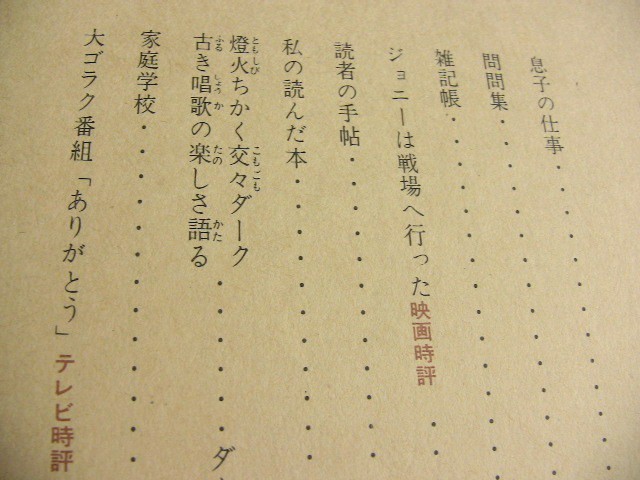 息子の仕事
問問集
雑記帳
ジョニーは戦場へ行った 映画時評
読者の手帖
私の読んだ本
燈火ちかく交々ダーク
古き唱歌の楽しさ語る ダ
家庭学校
大ゴラク番組「ありがとう」テレビ時評